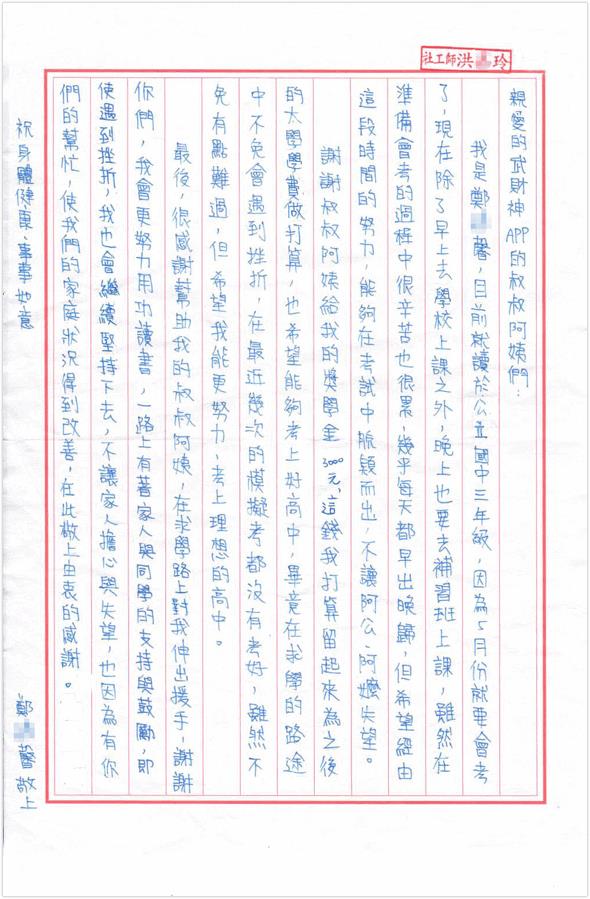 社工師洪玲
親愛的武財神APP的叔叔阿姨們：
我是鄭馨，目前就讀於公立國中三年級，因為5月份就要會考
了，現在除了早上去學校上課之外，晚上也要去補習班上課，雖然在
準備會考的過程中很辛苦也很累，幾乎每天都早出晚歸，但希望經由
這段時間的努力，能夠在考試中脫穎而出，不讓阿公、阿嬤失望。
謝謝叔叔阿姨給我的獎學金3000元，這錢我打算留起來為之後
的大學學費做打算，也希望能夠考上好高中，畢竟在求學的路途
中不免會遇到挫折，在最近幾次的模擬考都沒有考好，雖然不
免有點難過，但希望我能更努力，考上理想的高中。
最後，很感謝幫助我的叔叔阿姨，在求學路上對我伸出援手，謝謝
你們，我會更努力用功讀書，一路上有著家人與同學的支持與鼓勵，即
使遇到挫折，我也會繼續堅持下去，不讓家人擔心與失望，也因為有你
們的幫忙，使我們的家庭狀況得到改善，在此敬上由衷的感謝。
祝身體健康，事事如意
鄭馨敬上